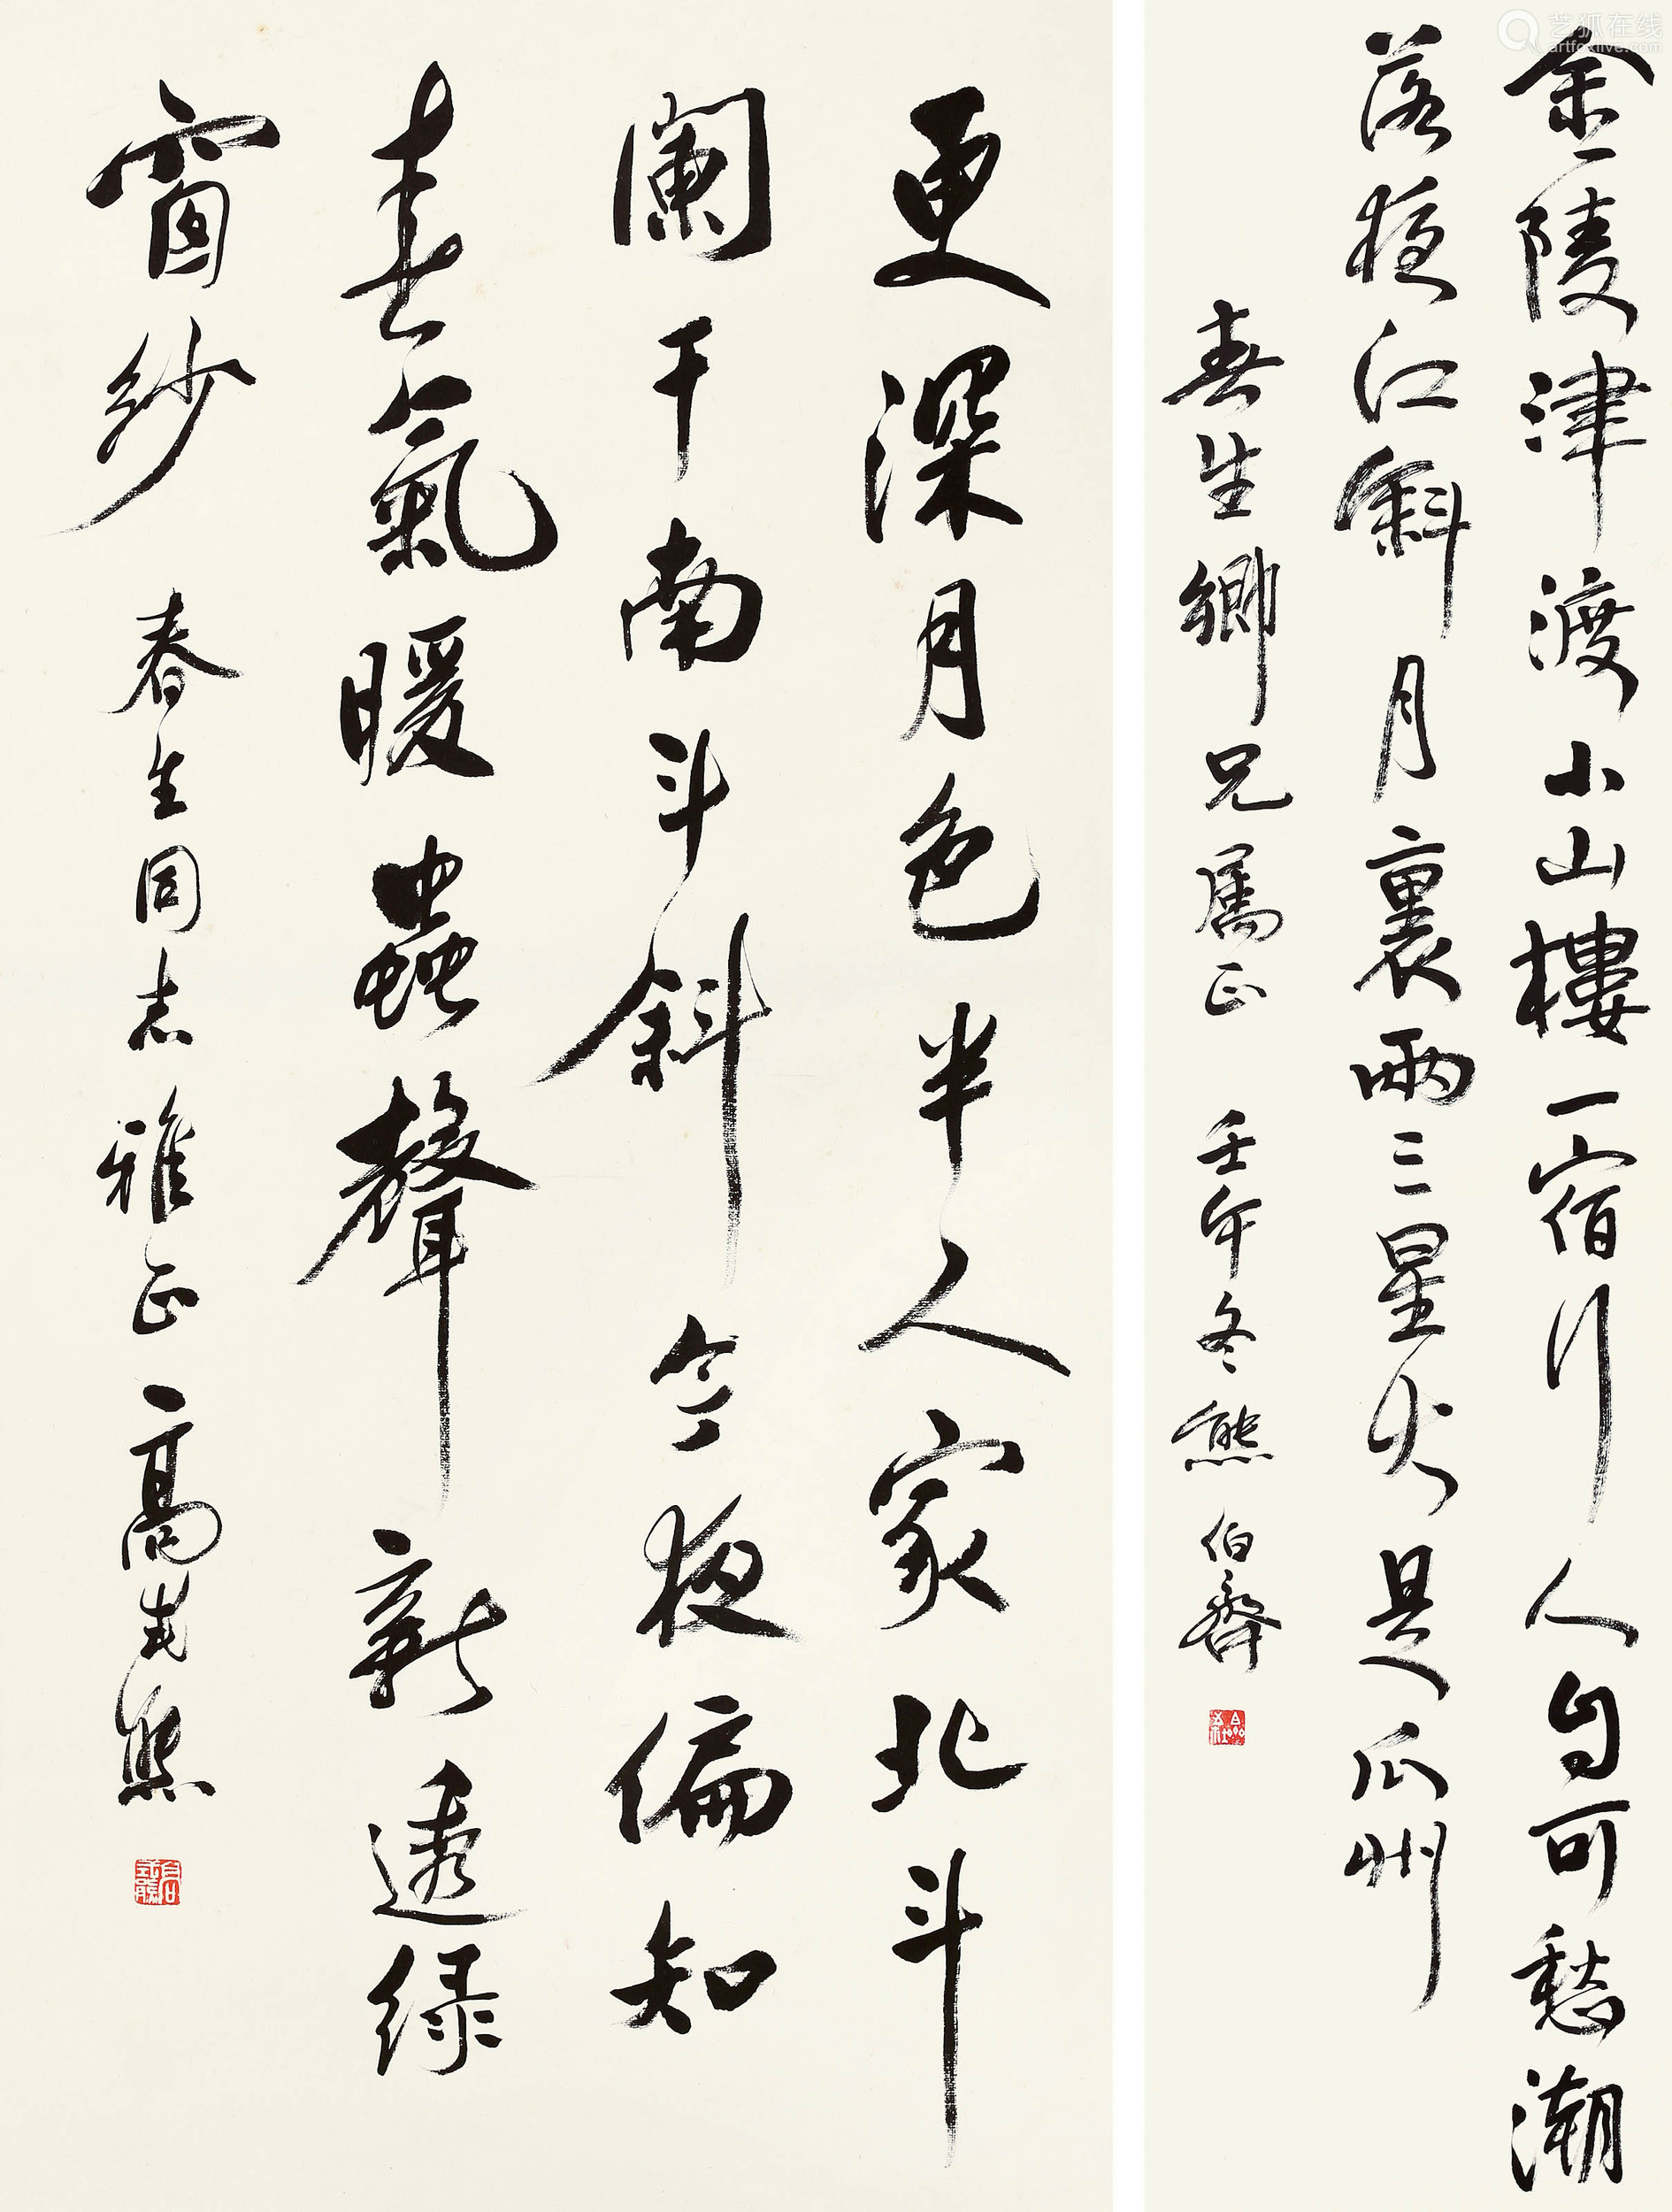 金陵津渡小山樓一宿行人自可愁潮
落夜江斜月裏兩三星火是瓜州
春生鄉兄屬正 壬午冬熊伯齊
更深月色半人家北斗
闌干南斗斜今夜偏知
春氣暖蟲聲新透绿
窗紗 春生同志雅正
艺狐在线
artfoxlive.com